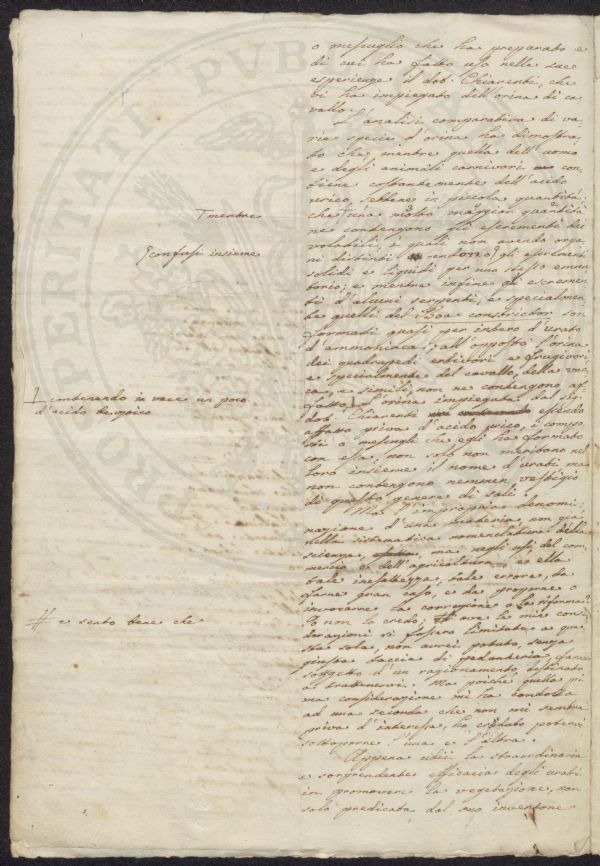 o mescuglio che ha preparato e
di cui ha fatto uso nelle sue
esperienze il dot. Chiarenti, che
vi ha impiegato dell'orina di ca
vallo.
L'analisi comparativa di va
rie specie d'orina ha dimostra
to che mentre quella dell'uomo
e degli animali carnivori con
tiene costantemente dell'acido
urico, sebbene in piccola quantità;
che una molto maggior quantità
ne contengono gli escrementi dei
volatili, i quali non avendo orga
ni distinti rendono gli escrementi
solidi e liquidi per uno stesso emun
torio; e mentre infine gli escremen
ti d'alcuni serpenti, e specialmen
te quelli del Boa constrictor son
formati quasi per intero d'urato
d'ammoniaca; all'opposto l'orina
dei quadrupedi erbivori e frugivori
e specialmente del cavallo, della vac
ca, e simili, non ne contengono af
fatto. L'orina impiegata dal sig.
dot. Chiarenti essendo
affatto priva d'acido urico, i compo
sti o mescugli che egli ha formato
con essa, non solo non meritano nel
loro insieme il nome d'urati ma
non contengono nemmen vestigio
di questo genere di sali.
Ma l'impropria denomi
nazione d'una materia, non già
nella sistematica nomenclatura della
scienza, ma negli usi del com
mercio e dell'agricoltura, è ella
tale inesattezza, tale errore, da
farne gran caso, e da proporne o
invocarne la correzione o la riforma?
Io non lo credo; # ove le mie consi
derazioni si fossero limitate a que
sta sola, non avrei potuto senza
giusta taccia di pedanteria farne
soggetto d'un ragionamento destinato
a trattenervi. Ma poichè quella pri
ma considerazione mi ha condotto
ad una seconda che non mi sembra
priva d'interesse, ho creduto potervi
sottoporre l'una e l'altra.
Appena udii la straordinaria
e sorprendente efficacia degli urati
in promovere la vegetazione, non
solo predicata dal suo inventore
mentre
confusi insieme
contenendo in vece un poco
d'acido benzoico
# e sento bene che
PROSPERITATI PVBLICAE